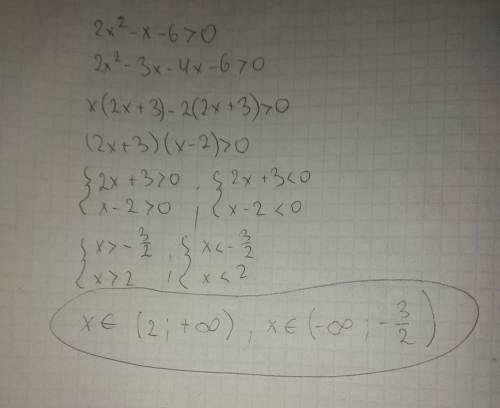 2x² - x - 6 > 0
2x² - 3x - 4x - 6 > 0
x(2x + 3) - 2(2x + 3) > 0
(2x + 3)(x - 2) > 0
{ 2x + 3 > 0 ; { 2x + 3 < 0
{ x - 2 > 0 ; { x - 2 < 0
{ x > - 3/2 ; { x < - 3/2
{ x > 2 ; { x < 2
x ∈ (2; +∞), x ∈ (-∞; - 3/2)